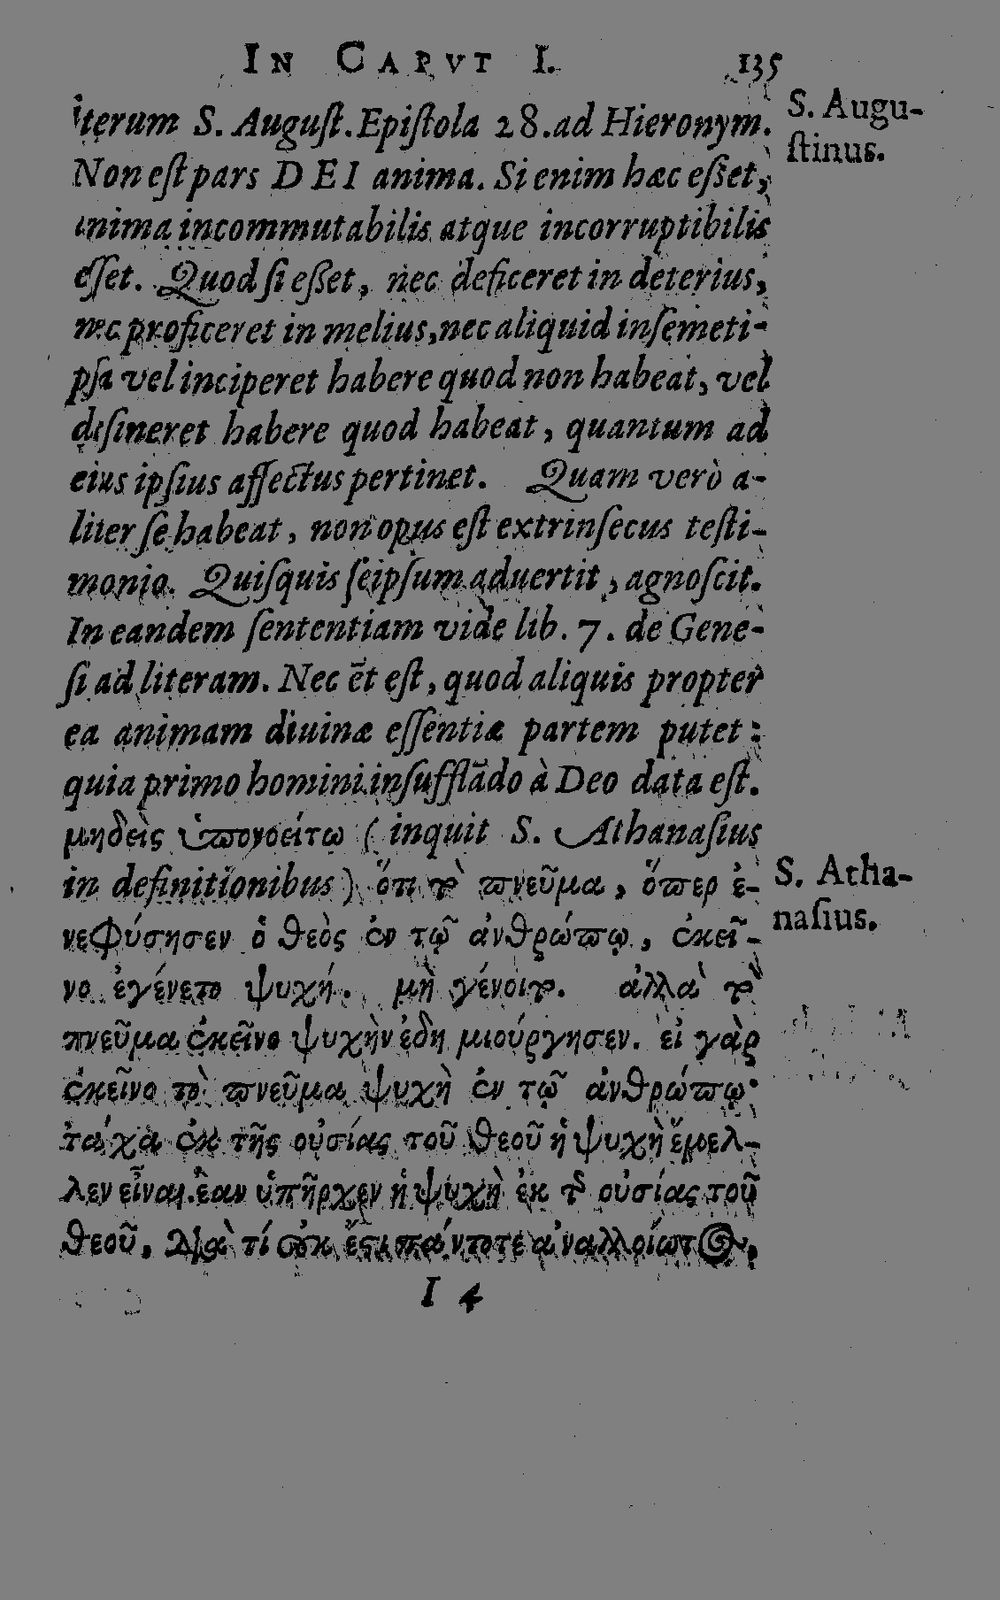 IN CAPVT I. 135
iterum S. Auguſt. Epiſtola 28. ad Hieronym.
S. Augu-
ſtinus.
Non eſt pars DEI anima. Si enim hæc eſſet,
anima incommutabilis atque incorruptibilis
eſſet. Quod ſi eſſet, nec deficeret in deterius,
nec proficeret in melius, nec aliquid in ſemeti-
pſa vel inciperet habere quod non habeat, vel
deſineret habere quod habeat, quantum ad
eius ipſius affectus pertinet. Quam verò a-
liter ſe habeat, non opus eſt extrinſecus teſti-
monio. Quiſquis ſeipſum aduertit, agnoſcit.
In eandem ſententiam vide lib. 7. de Gene-
ſi ad literam. Nec ēt eſt, quod aliquis propter
ea animam diuinæ eſſentiæ partem putet:
quia primo homini inſufflādo à Deo data eſt.
μηδεὶς ὑπονοείτω (inquit S. Athanaſius
in definitionibus) ὅτι τὸ πνεῦμα, ὅπερ ἐ-
S. Atha-
naſius.
νεφύσησεν ὁ θεὸς ἐν τῷ ἀνθρώπῳ, ἐκεῖ-
νο ἐγένετο ψυχή. μὴ γένοιτο. ἀλλὰ τὸ
πνεῦμα ἐκεῖνο ψυχὴν ἐδημιούργησεν. εἰ γὰρ
ἐκεῖνο τὸ πνεῦμα ψυχὴ ἐν τῷ ἀνθρώπῳ·
τάχα ἐκ τῆς οὐσίας τοῦ θεοῦ ἡ ψυχὴ ἔμελ-
λεν εἶναι. ἐαν ὑπῆρχεν ἡ ψυχὴ ἐκ τῆς οὐσίας τοῦ
θεοῦ, διὰ τί οὐκ ἔστι πάντοτε ἀναλλοίωτος,
I 4